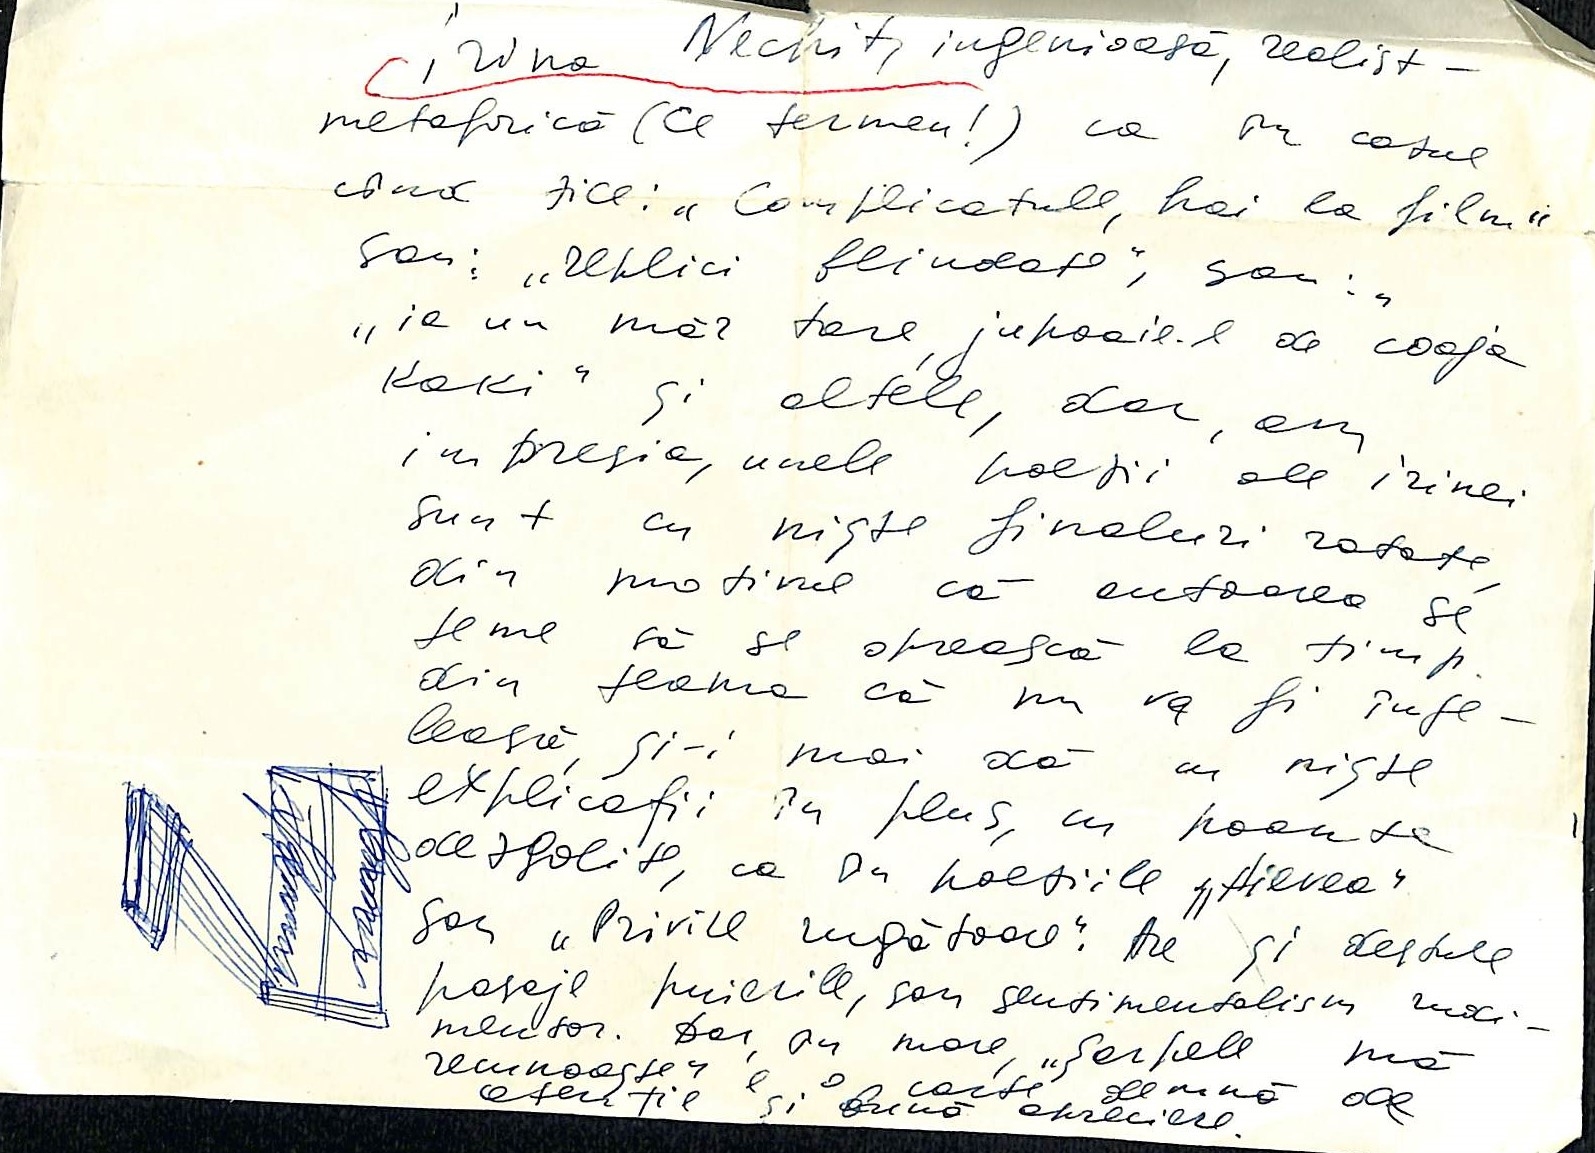 Irina Nechit, ingenioasă, realist-
metaforică (Ce termen!) ca în cazul
când zice: „Complicatule, hai la film"
sau: „replici blindate", sau: „
„ia un măr tare, jupoaie-l de coaja
kaki" și altele, dar, am
impresia, unele poezii ale Irinei
sunt cu niște finaluri ratate,
din motivul că autoarea se
teme să se oprească la timp.
din teama că nu va fi înțe-
leasă, și-i mai dă cu niște
explicații în plus, cu poante
dezgolite, ca în poeziile
sau „Privire rugătoare". Are și destule
pasaje puierile, sau sentimentalism rudi-
mentar. Dar, în mare, „Șarpele mă
recunoaște" e o carte demnă de
atenție și bună apreciere.